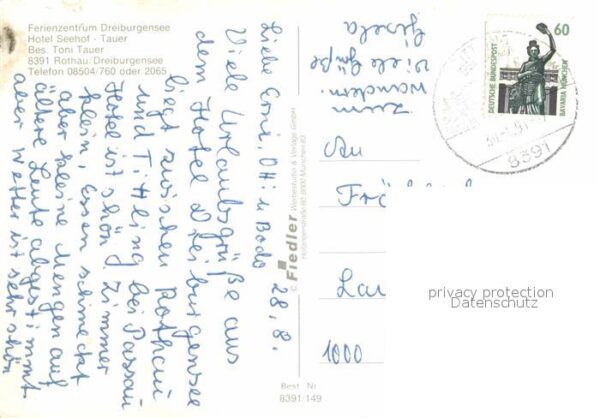 Ferienzentrum Dreiburgensee
Hotel Seehof - Tauer
Bes. Toni Tauer
8391 Rothau/Dreiburgensee
Telefon 08504/760 oder 2065
Liebe Erni, Otti u Bodo 28.8.
Viele Urlaubsgrüße aus
dem Hotel Dreiburgensee
liegt zwischen Rothau
und Tittling bei Passau
Hotel ist schön Zimmer
klein, Essen schmeckt
aber kleine Mengen auf
ältere Leute abgestimmt
aber Wetter ist sehr schön
zum
Wandern.
Viele Grüße
Gisela
© Fiedler Werbestudio & Verlags GmbH
8000 München 83
Best Nr
8391/149
60
DEUTSCHE BUNDESPOST
BAVARIA MÜNCHEN
8391
An
Lau
1000
privacy protection
Datenschutz